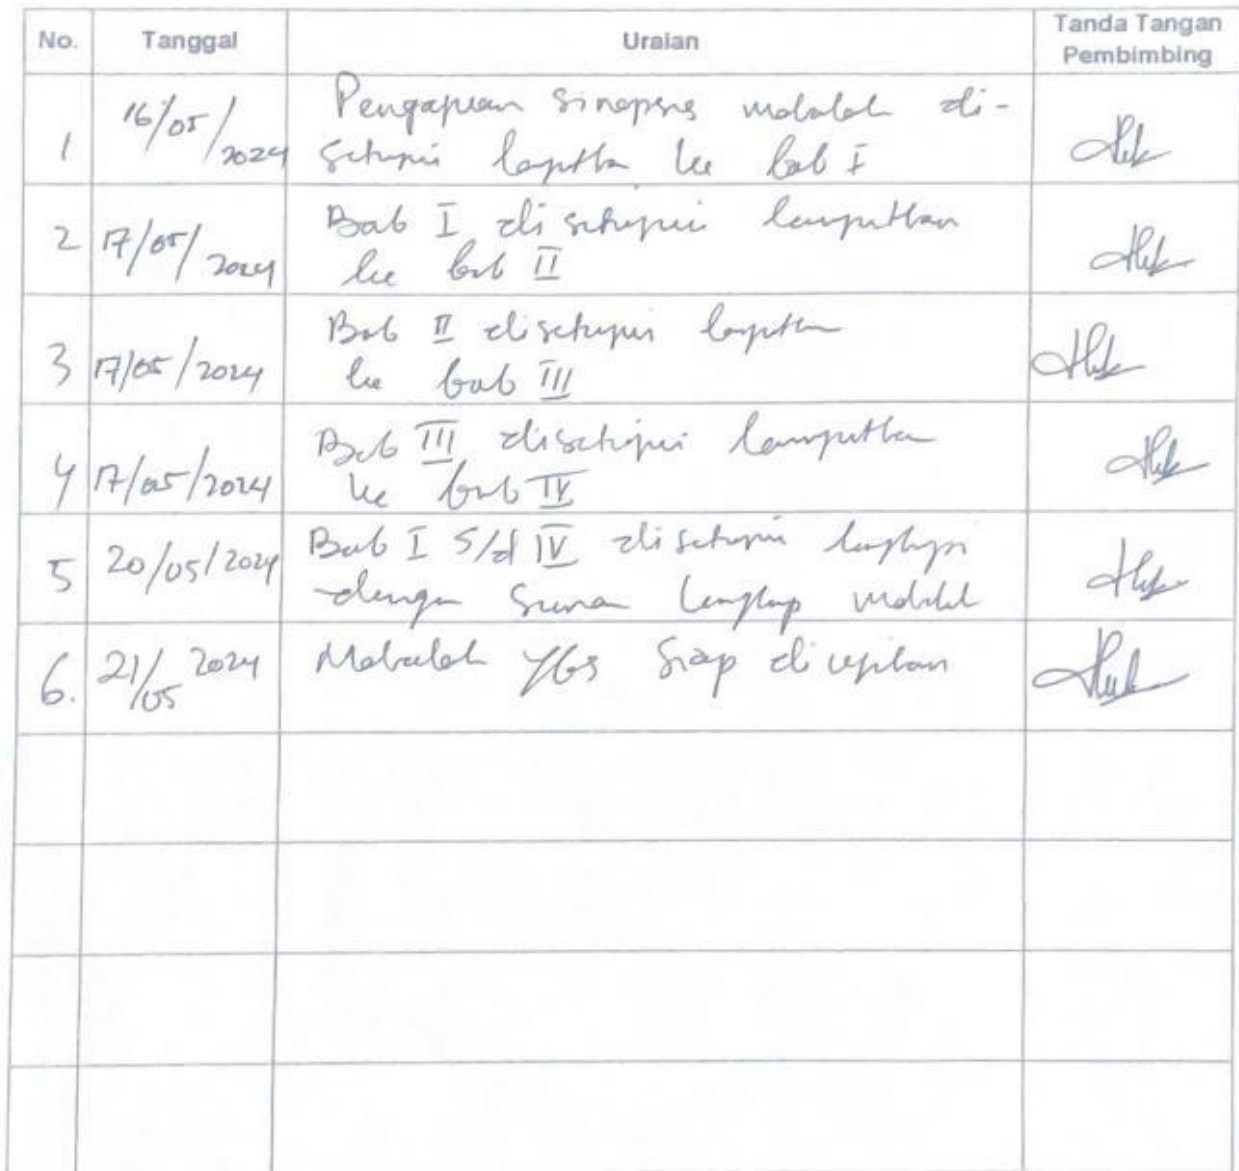 No. Tanggal Uraian Tanda Tangan
Pembimbing
1 16/05/2024 Pengajuan Sinopsis makalah di-
setujui lanjutkan ke bab I
2 17/05/2024 Bab I disetujui lanjutkan
ke bab II
3 17/05/2024 Bab II disetujui lanjutkan
ke bab III
4 17/05/2024 Bab III disetujui lanjutkan
ke bab IV
5 20/05/2024 Bab I s/d IV disetujui lengkapi
dengan lengkap makalah
6. 21/05 2024 Makalah siap diujikan